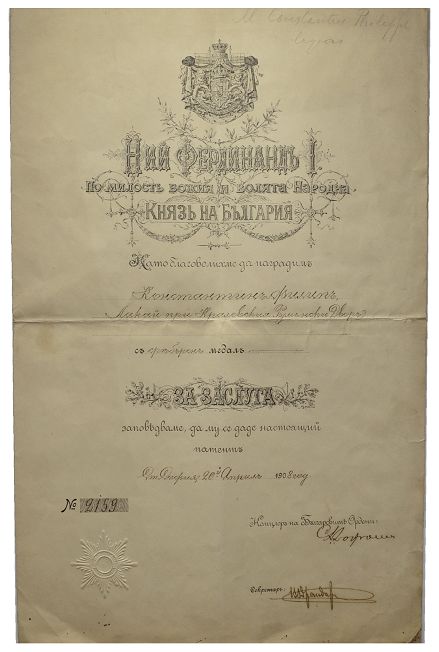 M Constantin Philipp
НИЙ ФЕРДИНАНДЪ I
ПО МИЛОСТЬ БОЖИЯ И ВОЛЯТА НАРОДНА
КНЯЗЬ НА БЪЛГАРИЯ
Като благоволихме да наградимъ
Константинъ Филипъ,
Лакай при Кралевския Румънски Дворъ
съ сребъренъ медалъ
ЗА ЗАСЛУГА
заповѣдваме, да му се даде настоящий
патентъ
От София, 20й Априлъ 1908 год
№ 2159
Канцлеръ на Българскитѣ Ордени:
Секретаръ: